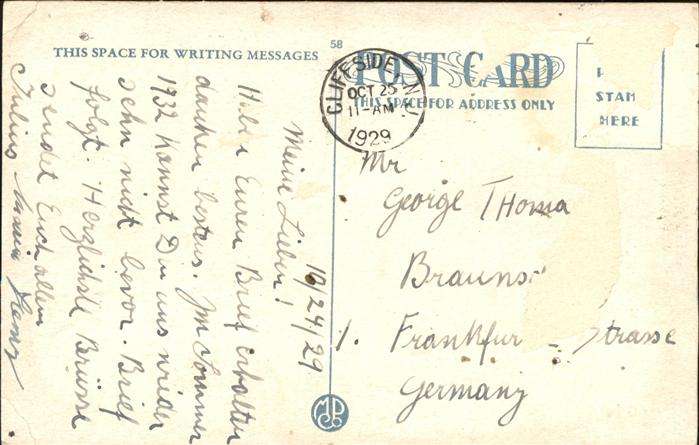 THIS SPACE FOR WRITING MESSAGES
58
POST CARD
THIS SPACE FOR ADDRESS ONLY
STAM
HERE
CLIFFSIDE, N.J.
OCT 25
11-AM
1929
10/24/29
Meine Lieben!
Habe Euren Brief erhalten
danken bestens. Im Sommer
1932 kannst Du uns wieder
sehn nicht bevor. Brief
folgt. Herzlichste Grüsse
sendet Euch allen
Julius
Mr
George Thoma
Brauns
1. Frankfur - Strasse
Germany